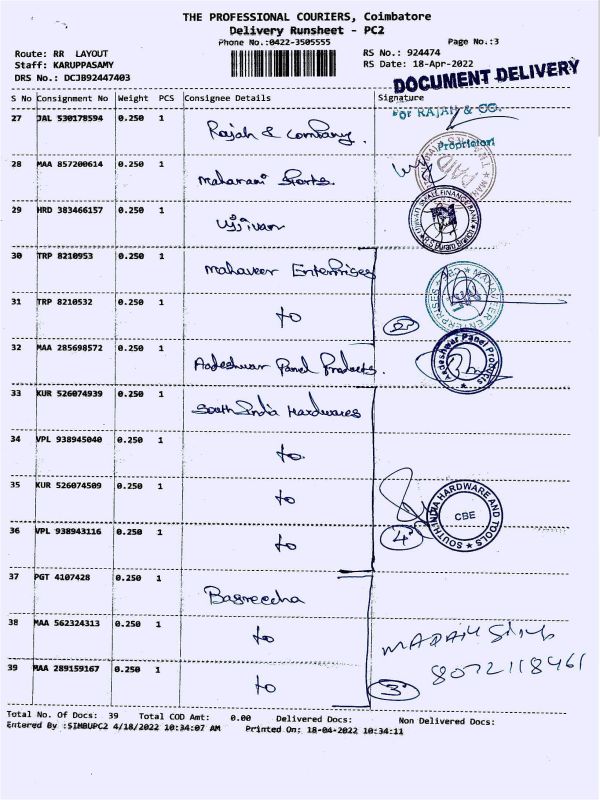 THE PROFESSIONAL COURIERS, Coimbatore
Delivery Runsheet - PC2
Phone No.:0422-3505555 Page No.:3
Route: RR LAYOUT RS No.: 924474
Staff: KARUPPASAMY RS Date: 18-Apr-2022
DRS No.: DCJB92447403
DOCUMENT DELIVERY
S No Consignment No Weight PCS Consignee Details Signature
For RAJAH & CO.
27 JAL 530178594 0.250 1 Rajah & Company.
Proprietor
28 MAA 857200614 0.250 1 Maharani Sports.
PAID
29 HRD 383466157 0.250 1 Ujjivan
UJJIVAN SMALL FINANCE BANK
30 TRP 8210953 0.250 1 Mahaveer Enterprises
MAHAVEER ENTERPRISES ★ CBE
31 TRP 8210532 0.250 1 to
32 MAA 285698572 0.250 1 Aadeshwar Panel Products.
Aadeshwar Panel Products
33 KUR 526074939 0.250 1 South India Hardwares
34 VPL 938945040 0.250 1 to
35 KUR 526074509 0.250 1 to
SOUTH INDIA HARDWARE AND TOOLS
CBE
36 VPL 938943116 0.250 1 to 4
37 PGT 4107428 0.250 1 Bagreecha
38 MAA 562324313 0.250 1 to
8072118461
39 MAA 289159167 0.250 1 to 3
Total No. Of Docs: 39 Total COD Amt: 0.00 Delivered Docs: Non Delivered Docs:
Entered By :SIMBUPC2 4/18/2022 10:34:07 AM Printed On: 18-04-2022 10:34:11